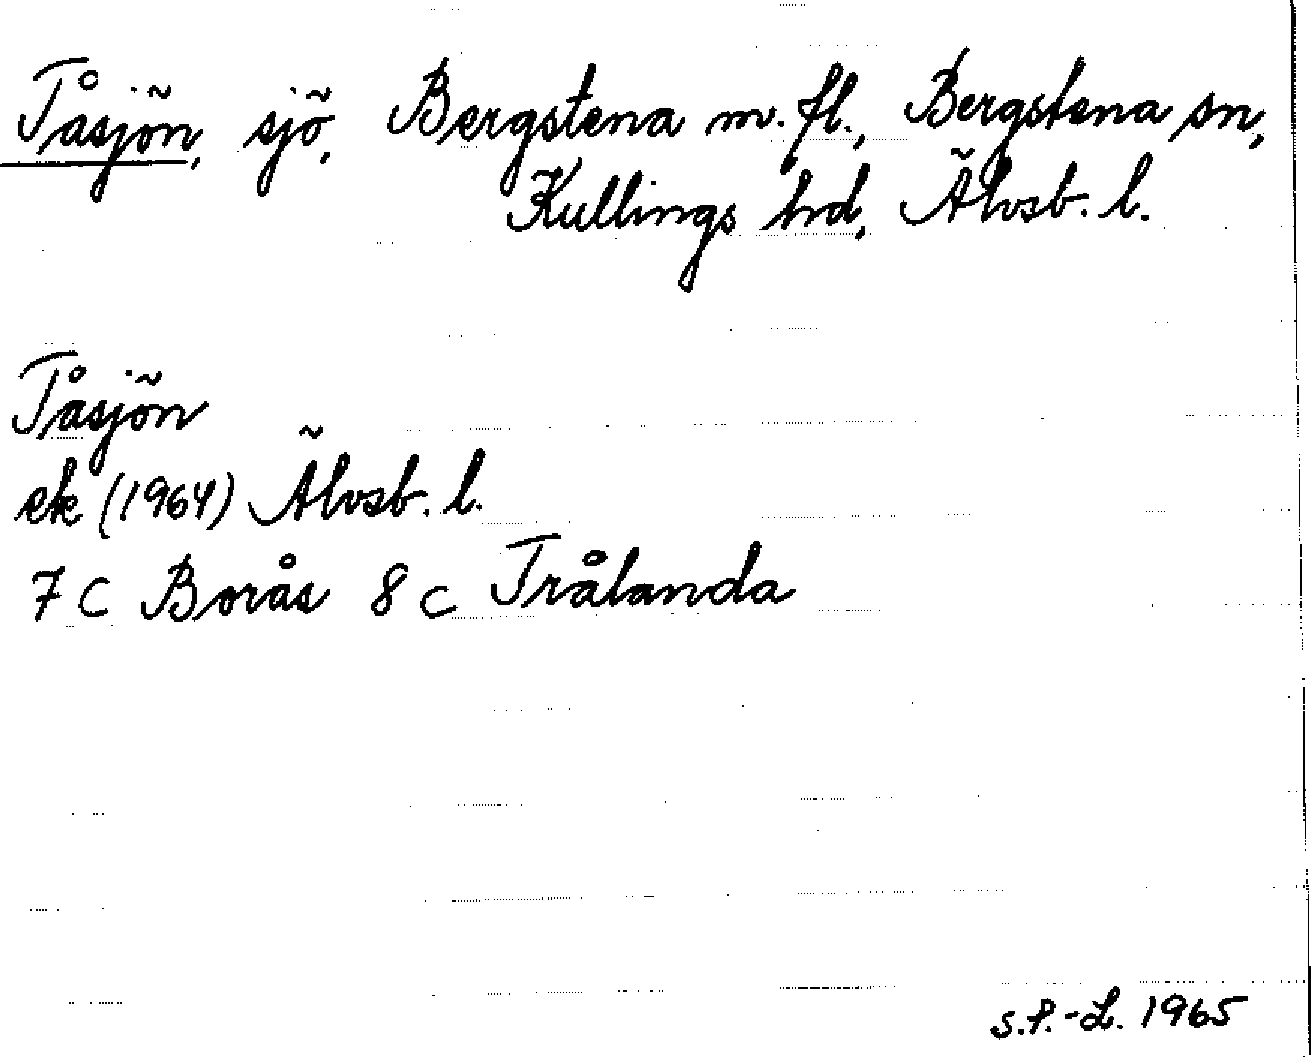 Tåsjön, sjö, Bergstena m. fl., Bergstena sn,
Kullings hd, Älvsb. l.
Tåsjön
ek (1964) Älvsb. l.
7 C Borås 8 c Trålanda
S.P.-L. 1965